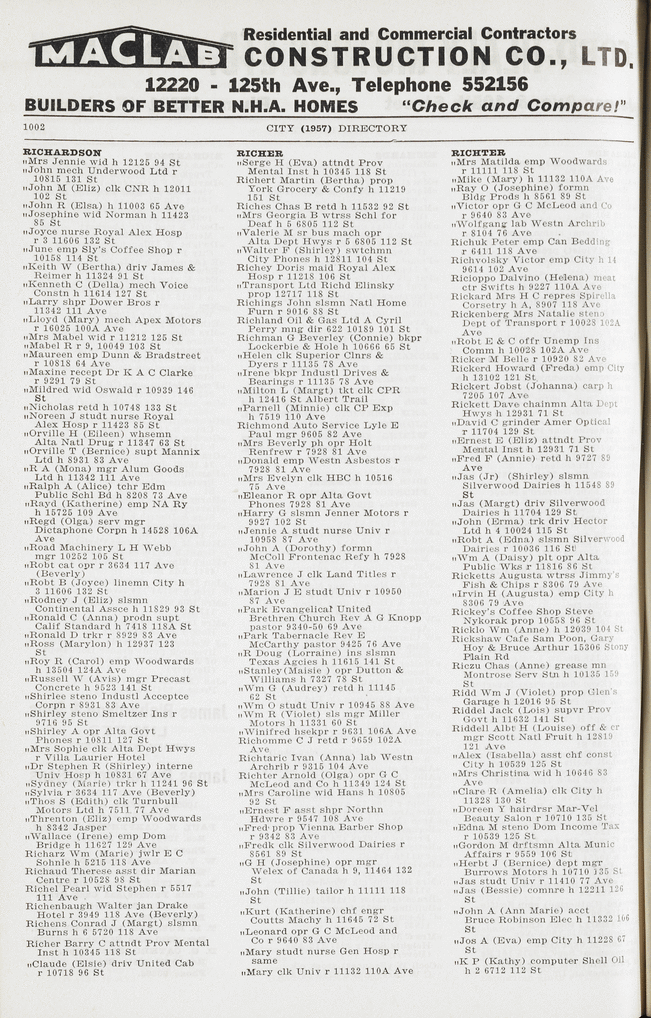 MACLAB
Residential and Commercial Contractors
CONSTRUCTION CO., LTD.
12220 - 125th Ave., Telephone 552156
BUILDERS OF BETTER N.H.A. HOMES "Check and Compare!"
1002
CITY (1957) DIRECTORY
RICHARDSON
„Mrs Jennie wid h 12125 94 St
„John mech Underwood Ltd r
10815 131 St
„John M (Eliz) clk CNR h 12011
102 St
„John R (Elsa) h 11003 65 Ave
„Josephine wid Norman h 11423
85 St
„Joyce nurse Royal Alex Hosp
r 3 11606 132 St
„June emp Sly's Coffee Shop r
10158 114 St
„Keith W (Bertha) driv James &
Reimer h 11324 91 St
„Kenneth C (Della) mech Voice
Constn h 11614 127 St
„Larry shpr Dower Bros r
11342 111 Ave
„Lloyd (Mary) mech Apex Motors
r 16025 100A Ave
„Mrs Mabel wid r 11212 125 St
„Mabel R r 9, 10049 103 St
„Maureen emp Dunn & Bradstreet
r 10818 64 Ave
„Maxine recept Dr K A C Clarke
r 9291 79 St
„Mildred wid Oswald r 10939 146
St
„Nicholas retd h 10748 133 St
„Noreen J studt nurse Royal
Alex Hosp r 11423 85 St
„Orville H (Eileen) whsemn
Alta Natl Drug r 11347 63 St
„Orville T (Bernice) supt Mannix
Ltd h 8931 83 Ave
„R A (Mona) mgr Alum Goods
Ltd h 11342 111 Ave
„Ralph A (Alice) tchr Edm
Public Schl Bd h 8208 73 Ave
„Rayd (Katherine) emp NA Ry
h 15725 109 Ave
„Regd (Olga) serv mgr
Dictaphone Corpn h 14528 106A
Ave
„Road Machinery L H Webb
mgr 10252 105 St
„Robt cat opr r 3634 117 Ave
(Beverly)
„Robt B (Joyce) linemn City h
3 11606 132 St
„Rodney J (Eliz) slsmn
Continental Assce h 11829 93 St
„Ronald C (Anna) prodn supt
Calif Standard h 7418 118A St
„Ronald D trkr r 8929 83 Ave
„Ross (Marylon) h 12937 123
St
„Roy R (Carol) emp Woodwards
h 13504 124A Ave
„Russell W (Avis) mgr Precast
Concrete h 9523 141 St
„Shirlee steno Industl Acceptce
Corpn r 8931 83 Ave
„Shirley steno Smeltzer Ins r
9716 95 St
„Shirley A opr Alta Govt
Phones r 10811 127 St
„Mrs Sophie clk Alta Dept Hwys
r Villa Laurier Hotel
„Dr Stephen R (Shirley) interne
Univ Hosp h 10831 67 Ave
„Sydney (Marie) trkr h 11241 96 St
„Sylvia r 3634 117 Ave (Beverly)
„Thos S (Edith) clk Turnbull
Motors Ltd h 7511 77 Ave
„Threnton (Eliz) emp Woodwards
h 8342 Jasper
„Wallace (Irene) emp Dom
Bridge h 11627 129 Ave
Richarz Wm (Marie) jwlr E C
Sohnle h 5215 118 Ave
Richaud Therese asst dir Marian
Centre r 10528 98 St
Richel Pearl wid Stephen r 5517
111 Ave
Richenbaugh Walter jan Drake
Hotel r 3949 118 Ave (Beverly)
Richens Conrad J (Margt) slsmn
Burns h 6 5720 118 Ave
Richer Barry C attndt Prov Mental
Inst h 10345 118 St
„Claude (Elsie) driv United Cab
r 10718 96 St
RICHER
„Serge H (Eva) attndt Prov
Mental Inst h 10345 118 St
Richert Martin (Bertha) prop
York Grocery & Confy h 11219
151 St
Riches Chas B retd h 11532 92 St
„Mrs Georgia B wtrss Schl for
Deaf h 5 6805 112 St
„Valerie M sr bus mach opr
Alta Dept Hwys r 5 6805 112 St
„Walter F (Shirley) swtchmn
City Phones h 12811 104 St
Richey Doris maid Royal Alex
Hosp r 11218 106 St
„Transport Ltd Richd Elinsky
prop 12717 118 St
Richings John slsmn Natl Home
Furn r 9016 88 St
Richland Oil & Gas Ltd A Cyril
Perry mng dir 622 10189 101 St
Richman G Beverley (Connie) bkpr
Lockerbie & Hole h 10666 65 St
„Helen clk Superior Clnrs &
Dyers r 11135 78 Ave
„Irene bkpr Industl Drives &
Bearings r 11135 78 Ave
„Milton L (Margt) tkt clk CPR
h 12416 St Albert Trail
„Parnell (Minnie) clk CP Exp
h 7519 110 Ave
Richmond Auto Service Lyle E
Paul mgr 9605 82 Ave
„Mrs Beverly ph opr Holt
Renfrew r 7928 81 Ave
„Donald emp Westn Asbestos r
7928 81 Ave
„Mrs Evelyn clk HBC h 10516
75 Ave
„Eleanor R opr Alta Govt
Phones 7928 81 Ave
„Harry G slsmn Jenner Motors r
9927 102 St
„Jennie A studt nurse Univ r
10958 87 Ave
„John A (Dorothy) formn
McColl Frontenac Refy h 7928
81 Ave
„Lawrence J clk Land Titles r
7928 81 Ave
„Marion J E studt Univ r 10950
87 Ave
„Park Evangelical United
Brethren Church Rev A G Knopp
pastor 9340-50 69 Ave
„Park Tabernacle Rev E
McCarthy pastor 9425 76 Ave
„R Doug (Lorraine) ins slsmn
Texas Agcies h 11615 141 St
„Stanley (Maisie) opr Dutton &
Williams h 7327 78 St
„Wm G (Audrey) retd h 11145
62 St
„Wm O studt Univ r 10945 88 Ave
„Wm R (Violet) sls mgr Miller
Motors h 11331 60 St
„Winifred hsekpr r 9631 106A Ave
Richomme C J retd r 9659 102A
Ave
Richtaric Ivan (Anna) lab Westn
Archrib r 9315 104 Ave
Richter Arnold (Olga) opr G C
McLeod and Co h 11349 124 St
„Mrs Caroline wid Hans h 10805
92 St
„Ernest F asst shpr Northn
Hdwre r 9547 108 Ave
„Fred prop Vienna Barber Shop
r 9342 83 Ave
„Fredk clk Silverwood Dairies r
8561 89 St
„G H (Josephine) opr mgr
Welex of Canada h 9, 11464 132
St
„John (Tillie) tailor h 11111 118
St
„Kurt (Katherine) chf engr
Coutts Machy h 11645 72 St
„Leonard opr G C McLeod and
Co r 9640 83 Ave
„Mary studt nurse Gen Hosp r
same
„Mary clk Univ r 11132 110A Ave
RICHTER
„Mrs Matilda emp Woodwards
r 11111 118 St
„Mike (Mary) h 11132 110A Ave
„Ray O (Josephine) formn
Bldg Prods h 8561 89 St
„Victor opr G C McLeod and Co
r 9640 83 Ave
„Wolfgang lab Westn Archrib
r 8104 76 Ave
Richuk Peter emp Can Bedding
r 6411 118 Ave
Richvolsky Victor emp City h 14
9614 102 Ave
Ricioppo Dalvino (Helena) meat
ctr Swifts h 9227 110A Ave
Rickard Mrs H C repres Spirella
Corsetry h A, 8907 118 Ave
Rickenberg Mrs Natalie steno
Dept of Transport r 10028 102A
Ave
„Robt E & C offr Unemp Ins
Comm h 10028 102A Ave
Ricker M Belle r 10920 82 Ave
Rickerd Howard (Freda) emp City
h 13102 121 St
Rickert Jobst (Johanna) carp h
7205 107 Ave
Rickett Dave chainmn Alta Dept
Hwys h 12931 71 St
„David C grinder Amer Optical
r 11704 129 St
„Ernest E (Eliz) attndt Prov
Mental Inst h 12931 71 St
„Fred F (Annie) retd h 9727 89
Ave
„Jas (Jr) (Shirley) slsmn
Silverwood Dairies h 11548 89
St
„Jas (Margt) driv Silverwood
Dairies h 11704 129 St
„John (Erma) trk driv Hector
Ltd h 4 10024 115 St
„Robt A (Edna) slsmn Silverwood
Dairies r 10036 116 St
„Wm A (Daisy) plt opr Alta
Public Wks r 11816 86 St
Ricketts Augusta wtrss Jimmy's
Fish & Chips r 8306 79 Ave
„Irvin H (Augusta) emp City h
8306 79 Ave
Rickey's Coffee Shop Steve
Nykorak prop 10558 96 St
Ricklo Wm (Anne) h 12039 104 St
Rickshaw Cafe Sam Poon, Gary
Hoy & Bruce Arthur 15306 Stony
Plain Rd
Riczu Chas (Anne) grease mn
Montrose Serv Stn h 10135 159
St
Ridd Wm J (Violet) prop Glen's
Garage h 12016 95 St
Riddel Jack (Lois) supvr Prov
Govt h 11632 141 St
Riddell Albt H (Louise) off & cr
mgr Scott Natl Fruit h 12819
121 Ave
„Alex (Isabella) asst chf const
City h 10539 125 St
„Mrs Christina wid h 10646 83
Ave
„Clare R (Amelia) clk City h
11328 130 St
„Doreen Y hairdrsr Mar-Vel
Beauty Salon r 10710 135 St
„Edna M steno Dom Income Tax
r 10539 125 St
„Gordon M drftsmn Alta Munic
Affairs r 9559 106 St
„Herbt J (Bernice) dept mgr
Burrows Motors h 10710 135 St
„Jas studt Univ r 11410 77 Ave
„Jas (Bessie) comnre h 12211 126
St
„John A (Ann Marie) acct
Bruce Robinson Elec h 11332 106
St
„Jos A (Eva) emp City h 11228 67
St
„K P (Kathy) computer Shell Oil
h 2 6712 112 St